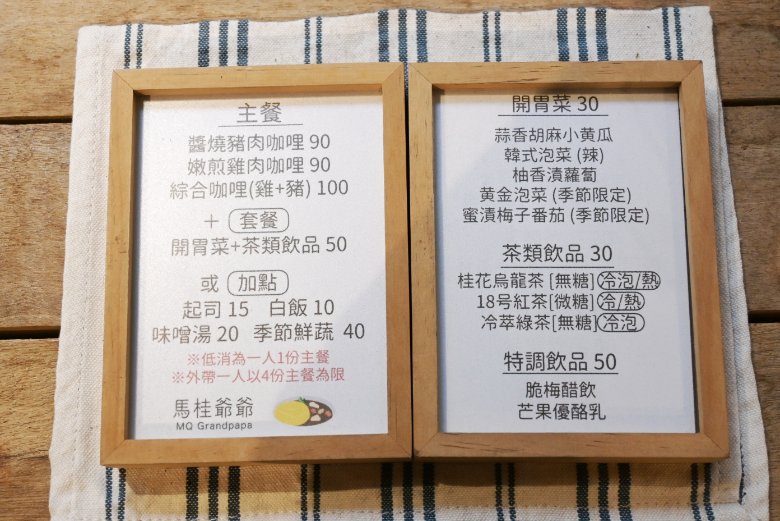 主餐
醬燒豬肉咖哩 90
嫩煎雞肉咖哩 90
綜合咖哩(雞+豬) 100
＋ 套餐
開胃菜+茶類飲品 50
或 加點
起司 15 白飯 10
味噌湯 20 季節鮮蔬 40
※低消為一人1份主餐
※外帶一人以4份主餐為限
馬桂爺爺
MQ Grandpapa
開胃菜 30
蒜香胡麻小黄瓜
韓式泡菜 (辣)
柚香漬蘿蔔
黄金泡菜 (季節限定)
蜜漬梅子番茄 (季節限定)
茶類飲品 30
桂花烏龍茶 [無糖] 冷泡/熱
18号紅茶[微糖] 冷/熱
冷萃綠茶[無糖] 冷泡
特調飲品 50
脆梅醋飲
芒果優酪乳